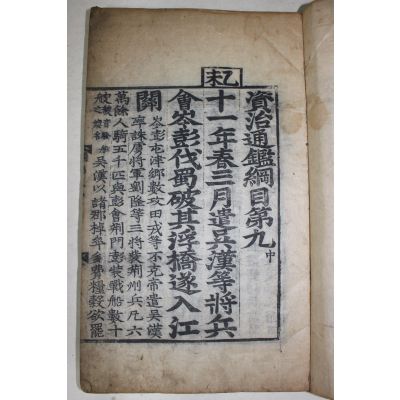 資治通鑑綱目第九中
乙未
十一年春三月遣吳漢等將兵
會岑彭伐蜀破其浮橋遂入江
關
岑彭屯津鄉數攻田戎等不克帝遣吳漢
率誅虜將軍劉隆等三將發荊州兵凡六
萬餘人騎五千匹與彭會荊門彭裝戰船數十
艘
吳漢以諸郡棹卒多費糧穀欲罷